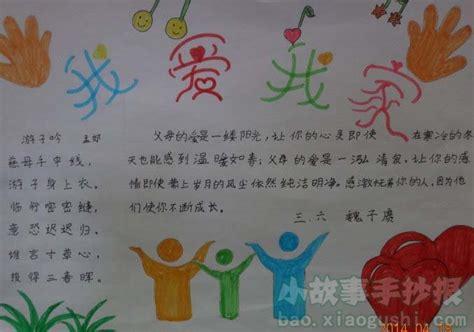 我爱我家
游子吟
慈母手中线,
游子身上衣。
临行密密缝,
意恐迟迟归。
谁言寸草心,
报得三春晖。
父母的爱是一缕阳光,让你的心灵即使 在寒冷的冬
天也能感到温暖如春;父母的爱是一泓清泉,让你的感
情即使蒙上岁月的风尘依然纯洁明净。感激抚养你的人,因为他
们使你不断成长。
三.六 魏子赓
小故事手抄报
bao.xiaogushi.com